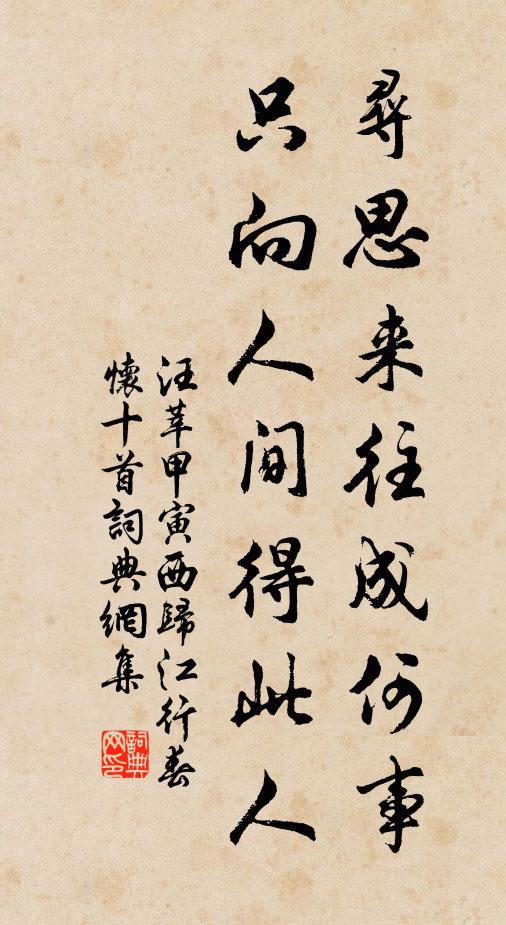 尋思来往成何事
只向人間得此人
汪莘甲寅西歸江行春
懷十首詞典網集
詞典網印